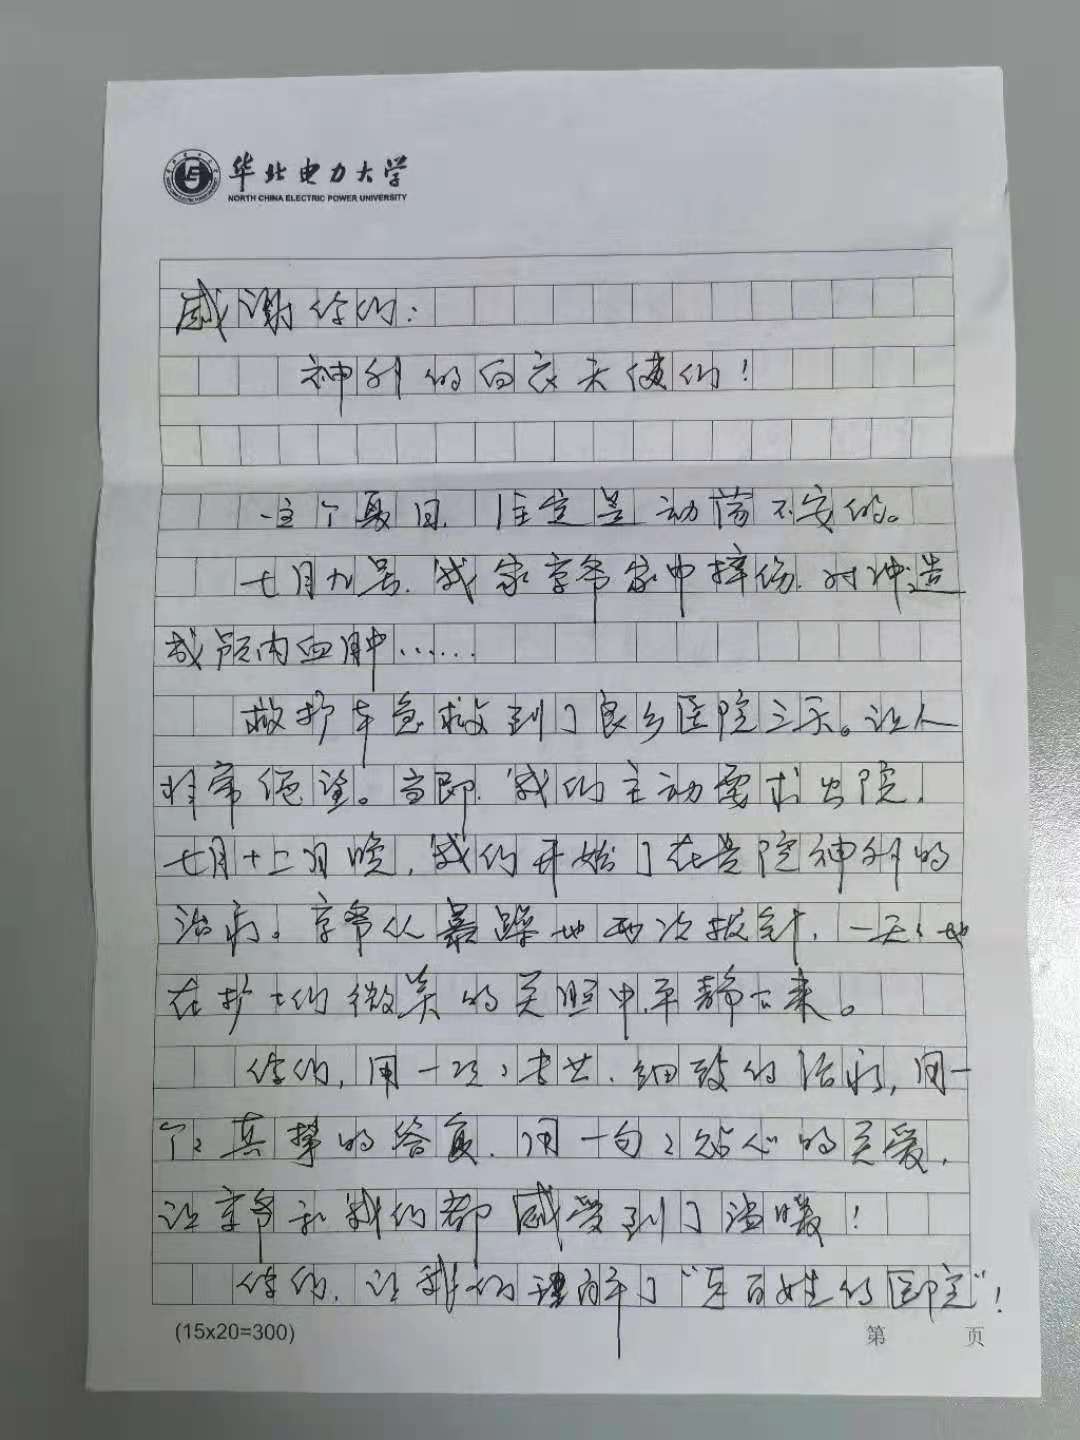 华北电力大学
NORTH CHINA ELECTRIC POWER UNIVERSITY
感谢你们：
神外的白衣天使们！
这个夏日，注定是动荡不安的。
七月九号，我家李爷家中摔伤，对冲造
成颅内血肿……
救护车急救到了良乡医院三天。让人
非常绝望。当即，我们主动要求出院，
七月十二月晚，我们开始了在贵院神外的
治疗。李爷从暴躁地两次拔针，一天天地
在护士们微笑的关照中平静下来。
你们，用一项项专业、细致的治疗，用一
个个真挚的答复，用一句句贴心的关爱，
让李爷和我们都感受到了温暖！
你们，让我们理解了“是百姓的医院”！
(15x20=300)
第 页